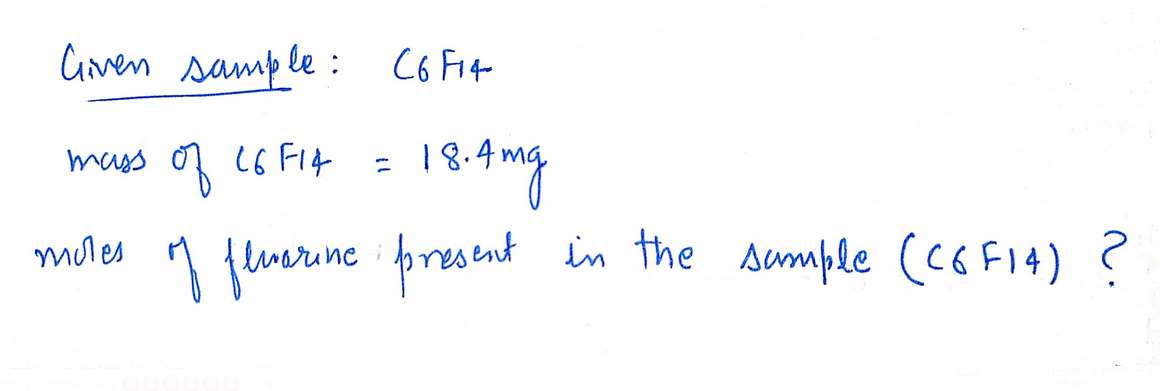 Given sample: C6F14
mass of C6F14 = 18.4mg
moles of fluorine present in the sample (C6F14) ?